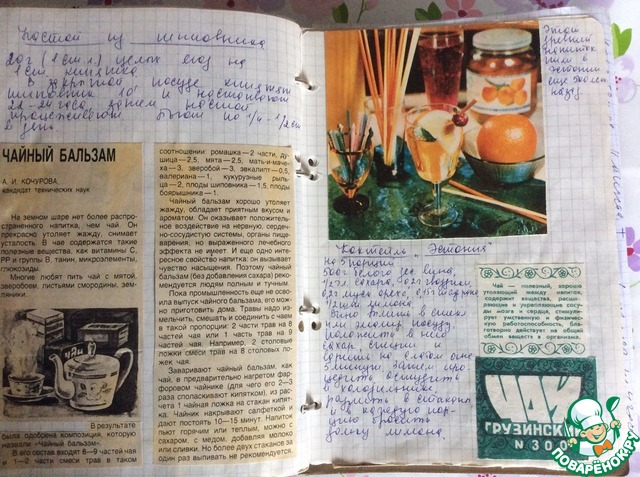 Настой из шиповника
20г (1 ст.л.) целых ягод на
1 ст. кипятка
шиповник 10' и настаивают
22-24 часа, затем настой
процеживают. Пьют по 1/4 - 1/2 ст
в день
ЧАЙНЫЙ БАЛЬЗАМ
А. И. КОЧУРОВА,
кандидат технических наук
На земном шаре нет более распро-
страненного напитка, чем чай. Он
прекрасно утоляет жажду, снимает
усталость. В чае содержатся такие
полезные вещества, как витамины С,
РР и группы В, танин, микроэлементы,
глюкозиды.
Многие любят пить чай с мятой,
зверобоем, листьями смородины, зем-
ляники.
ЧАЙ
В результате
была одобрена композиция, которую
назвали «Чайный бальзам».
В его состав входят 8—9 частей чая
и 1—2 части смеси трав в таком
соотношении: ромашка — 2 части, ду-
шица — 2,5, мята — 2,5, мать-и-маче-
ха — 3, зверобой — 3, эвкалипт — 0,5,
валериана — 1, кукурузные рыль-
ца — 2, плоды шиповника — 1,5, плоды
боярышника — 1.
Чайный бальзам хорошо утоляет
жажду, обладает приятным вкусом и
ароматом. Он оказывает положитель-
ное воздействие на нервную, сердеч-
но-сосудистую системы, органы пище-
варения, но выраженного лечебного
эффекта не имеет. И еще одно инте-
ресное свойство напитка: он вызывает
чувство насыщения. Поэтому чайный
бальзам (без добавления сахара) реко-
мендуется людям полным и тучным.
Пока промышленность еще не осво-
ила выпуск чайного бальзама, его мож-
но приготовить дома. Травы надо из-
мельчить, смешать и соединить с чаем
в такой пропорции: 2 части трав на 8
частей чая или 1 часть трав на 9
частей чая. Например, 2 столовые
ложки смеси трав на 8 столовых ло-
жек чая.
Заваривают чайный бальзам, как
чай, в предварительно нагретом фар-
форовом чайнике (для чего его 2—3
раза споласкивают кипятком), из рас-
чета 1 чайная ложка на стакан кипят-
ка. Чайник накрывают салфеткой и
дают постоять 10—15 минут. Напиток
пьют горячим или теплым, можно с
сахаром, с медом, добавляя молоко
или сливки. Но более двух стаканов за
один раз выпивать не рекомендуется.
Этот
древний
напиток
пили в
Эстонии
еще 500 лет
назад.
Коктейль „Эстония"
На 5 порций
500г белого
сахара
лимона
Вино влить в
эмалир. посуду
положить в него
сахар, специи и
варить на слабом огне
5 минут. Затем про-
цедить, остудить
в холодильнике
разлить в стаканы
и в каждую пор-
цию бросить
дольку лимона.
Чай — полезный, хорошо
утоляющий жажду напиток,
содержит вещества, расши-
ряющие и укрепляющие сосу-
ды мозга и сердца, стимули-
рует умственную и физичес-
кую работоспособность, бла-
готворно действует на общий
обмен веществ в организме.
ЧАЙ
ГРУЗИНСКИЙ
N 300
ПОВАРЁНОК.РУ